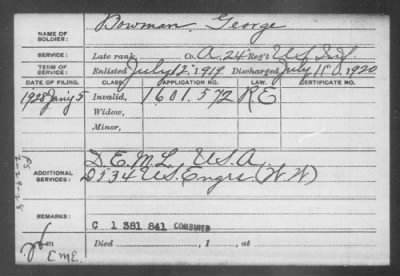 NAME OF SOLDIER: Bowman, George
SERVICE: Late rank, Co. A, 24" Reg't U.S. Inf.
TERM OF SERVICE: Enlisted July 12" 1919, Discharged July 11" 1920
DATE OF FILING. CLASS. APPLICATION NO. LAW. CERTIFICATE NO.
1928 Jan'y 5 Invalid, 1601.572 RE
Widow,
Minor,
ADDITIONAL SERVICES: D.E.M.L. U.S.A.
U.S. Engrs. (W W)
REMARKS:
C 1 381 841 COMBINED
Died , 1 , at
CME.